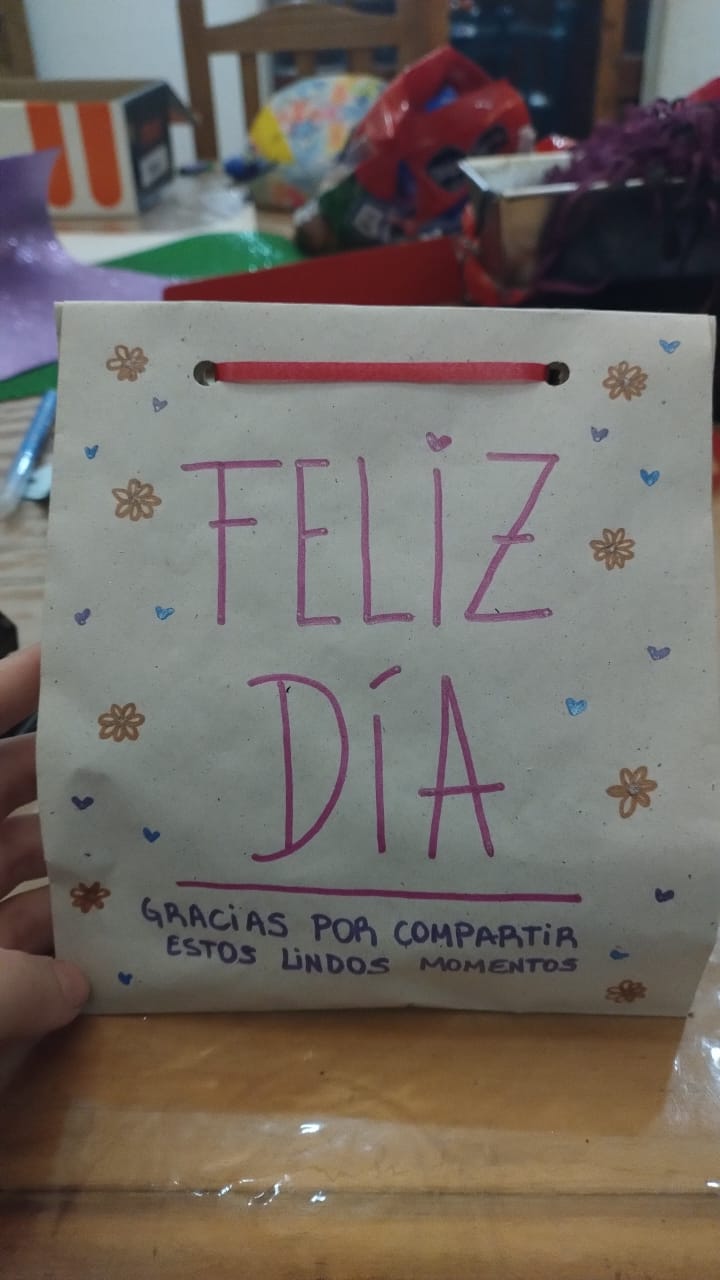 FELIZ
DÍA
GRACIAS POR COMPARTIR
ESTOS LINDOS MOMENTOS